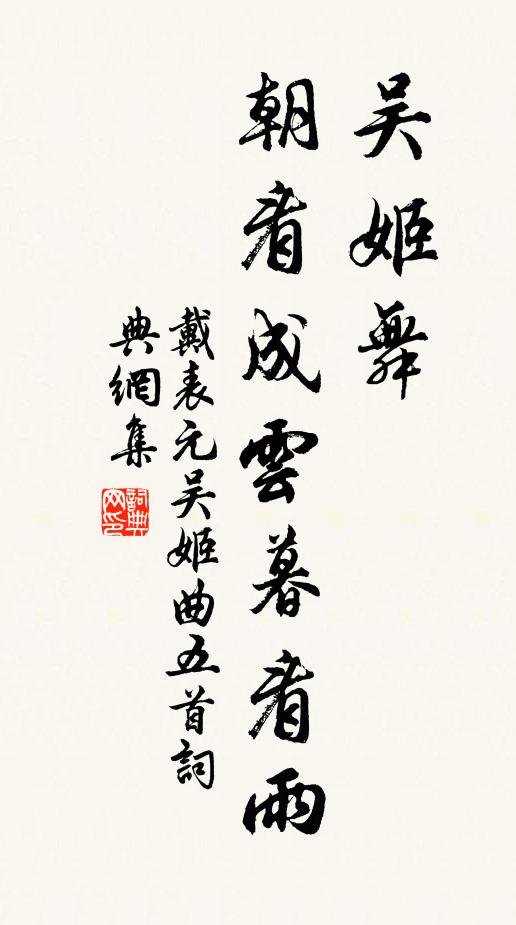 吴姬舞
朝看成雲暮看雨
戴表元吴姬曲五首詞
典網集
詞典网印